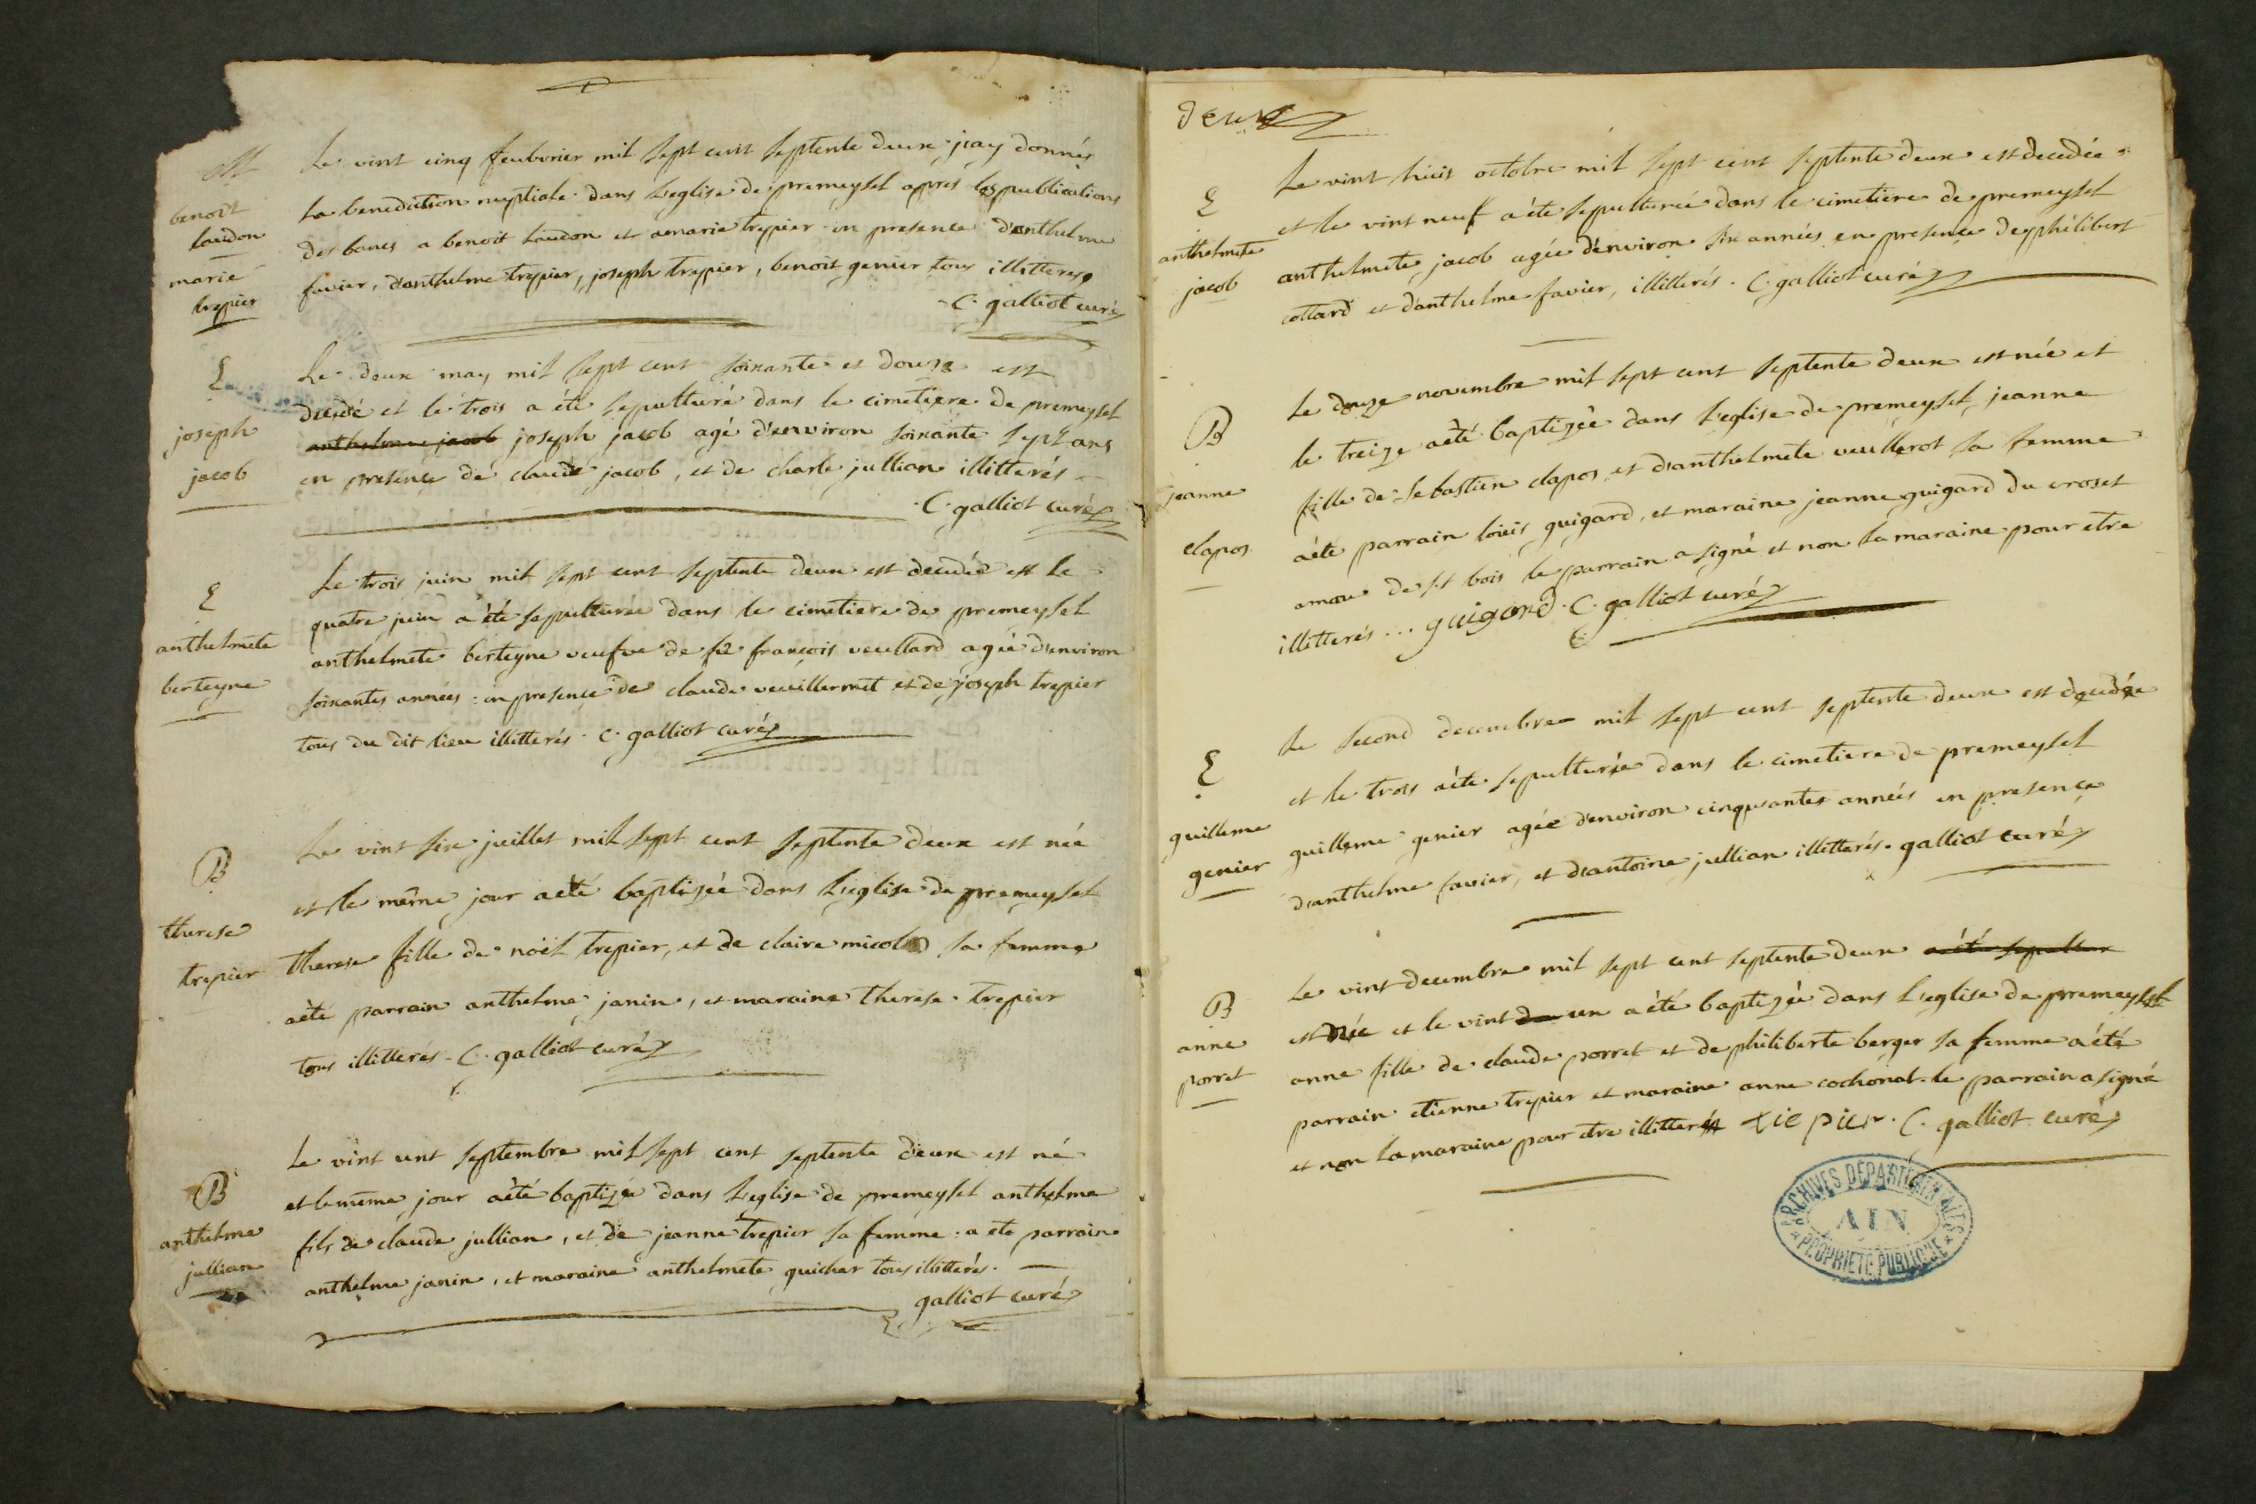 M
benoit
laudon
marie
trepier
Le vint cinq feubvrier mil sept cent septente deux j'ay donnés
la benediction nuptiale dans L'eglise de premeysel apres les publications
des bancs a benoit Laudon et a marie trepier en presence d'anthelme
favier, d'anthelme trepier, joseph trepier, benoit genier tous illitteres
C. galliot curé
E
joseph
jacob
Le deux may mil sept cent soixante et douze est
decedé et le trois a été sepulturé dans le cimetiere de premeysel
anthelme jacob joseph jacob agé d'environ soixante sept ans
en presence de claude jacob, et de charle jullian illitterés
C. galliot curé
E
anthelmete
berteyne
Le trois juin mil sept cent septente deux est decedée et le
quatre juin a été sepulturée dans le cimetiere de premeysel
anthelmete berteyne veufve de fe françois veullard agée d'environ
soixantes années en presence de claude veuillermet et de joseph trepier
tous du dit lieu illitterés. C. galliot curé
B
therese
trepier
Le vint six juillet mil sept cent septente deux est née
et le même jour aeté baptizée dans L'eglise de premeysel
therese fille de noël trepier, et de claire micol sa femme
aété parrain anthelme janin, et maraine therese trepier
tous illitterés. C. galliot curé
B
anthelme
jullian
Le vint unt septembre mil sept cent septente deux est né
et le même jour aété baptizée dans L'eglise de premeysel anthelme
fils de claude jullian, et de jeanne trepier sa femme a ete parrain
anthelme janin, et maraine anthelmete quichar tous illitterés.
galliot curé
deux
E
anthelmete
jacob
Le vint huit octobre mil sept cent septente deux est decedée
et le vint neuf a été sepulturée dans le cimetiere de premeysel
anthelmete jacob agée d'environ six années en presence de philibert
cottard et d'anthelme favier, illitterés. C. galliot curé
B
jeanne
clapos
Le douze novembre mil sept cent septente deux est née et
le treize aété baptizée dans L'eglise de premeysel, jeanne
fille de Sebastien clapos et d'anthelmete veullerot sa femme
aété parrain loüis guigard, et maraine jeanne guigard du croset
de st bois le parrain a signé et non la maraine pour etre
illitterés... guigard. C. galliot curé
E
guilleme
genier
Le second decembre mil sept cent septente deux est decedée
et le trois aété sepulturée dans le cimetiere de premeysel
guilleme genier agée d'environ cinquantes années en presence
d'anthelme favier, et d'antoine jullian illitterés. galliot curé
B
anne
porret
Le vint decembre mil sept cent septente deux a été sepultur
est née et le vint de un a été baptizée dans L'eglise de premeysel
anne fille de claude porret et de philiberte berger sa femme a été
parrain etienne trepier et maraine anne cochonat le parrain a signé
et non la maraine pour etre illitterée trepier. C. galliot curé
ARCHIVES DÉPARTEMENTALES
AIN
PROPRIÉTÉ PUBLIQUE